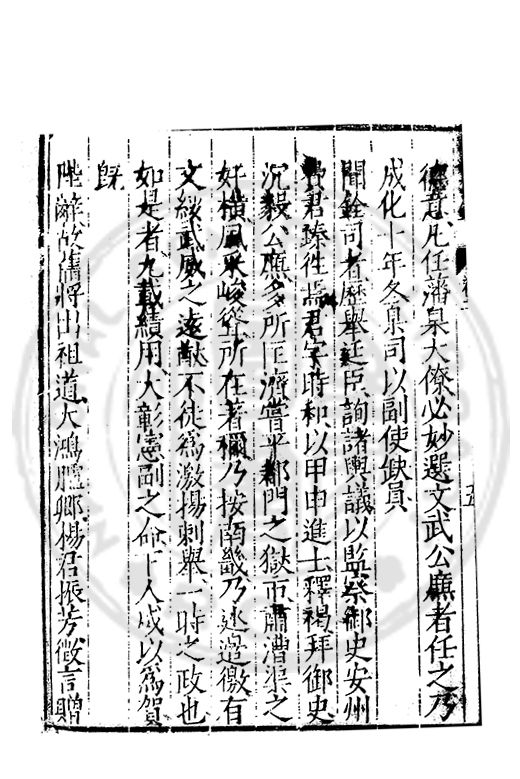 德意凡任藩臬大僚必妙選文武公廉者任之乃
成化十年冬臬司以副使缺員
聞銓司者歷舉廷臣詢諸輿議以監察御史安州
君臻徃焉君字時和以甲申進士釋褐拜御史
沉毅公廉多所匡濟嘗平都門之獄市肅漕渠之
奸橫風采峻從所在著稱乃按南畿乃巡邊徼有
文綏武威之遠猷不徒爲激揚刺舉一時之政也
如是者九載績用大彰憲副之命下人咸以爲賀
旣
陛辭故舊將出祖道大鴻臚卿楊君振芳徵言贈
五